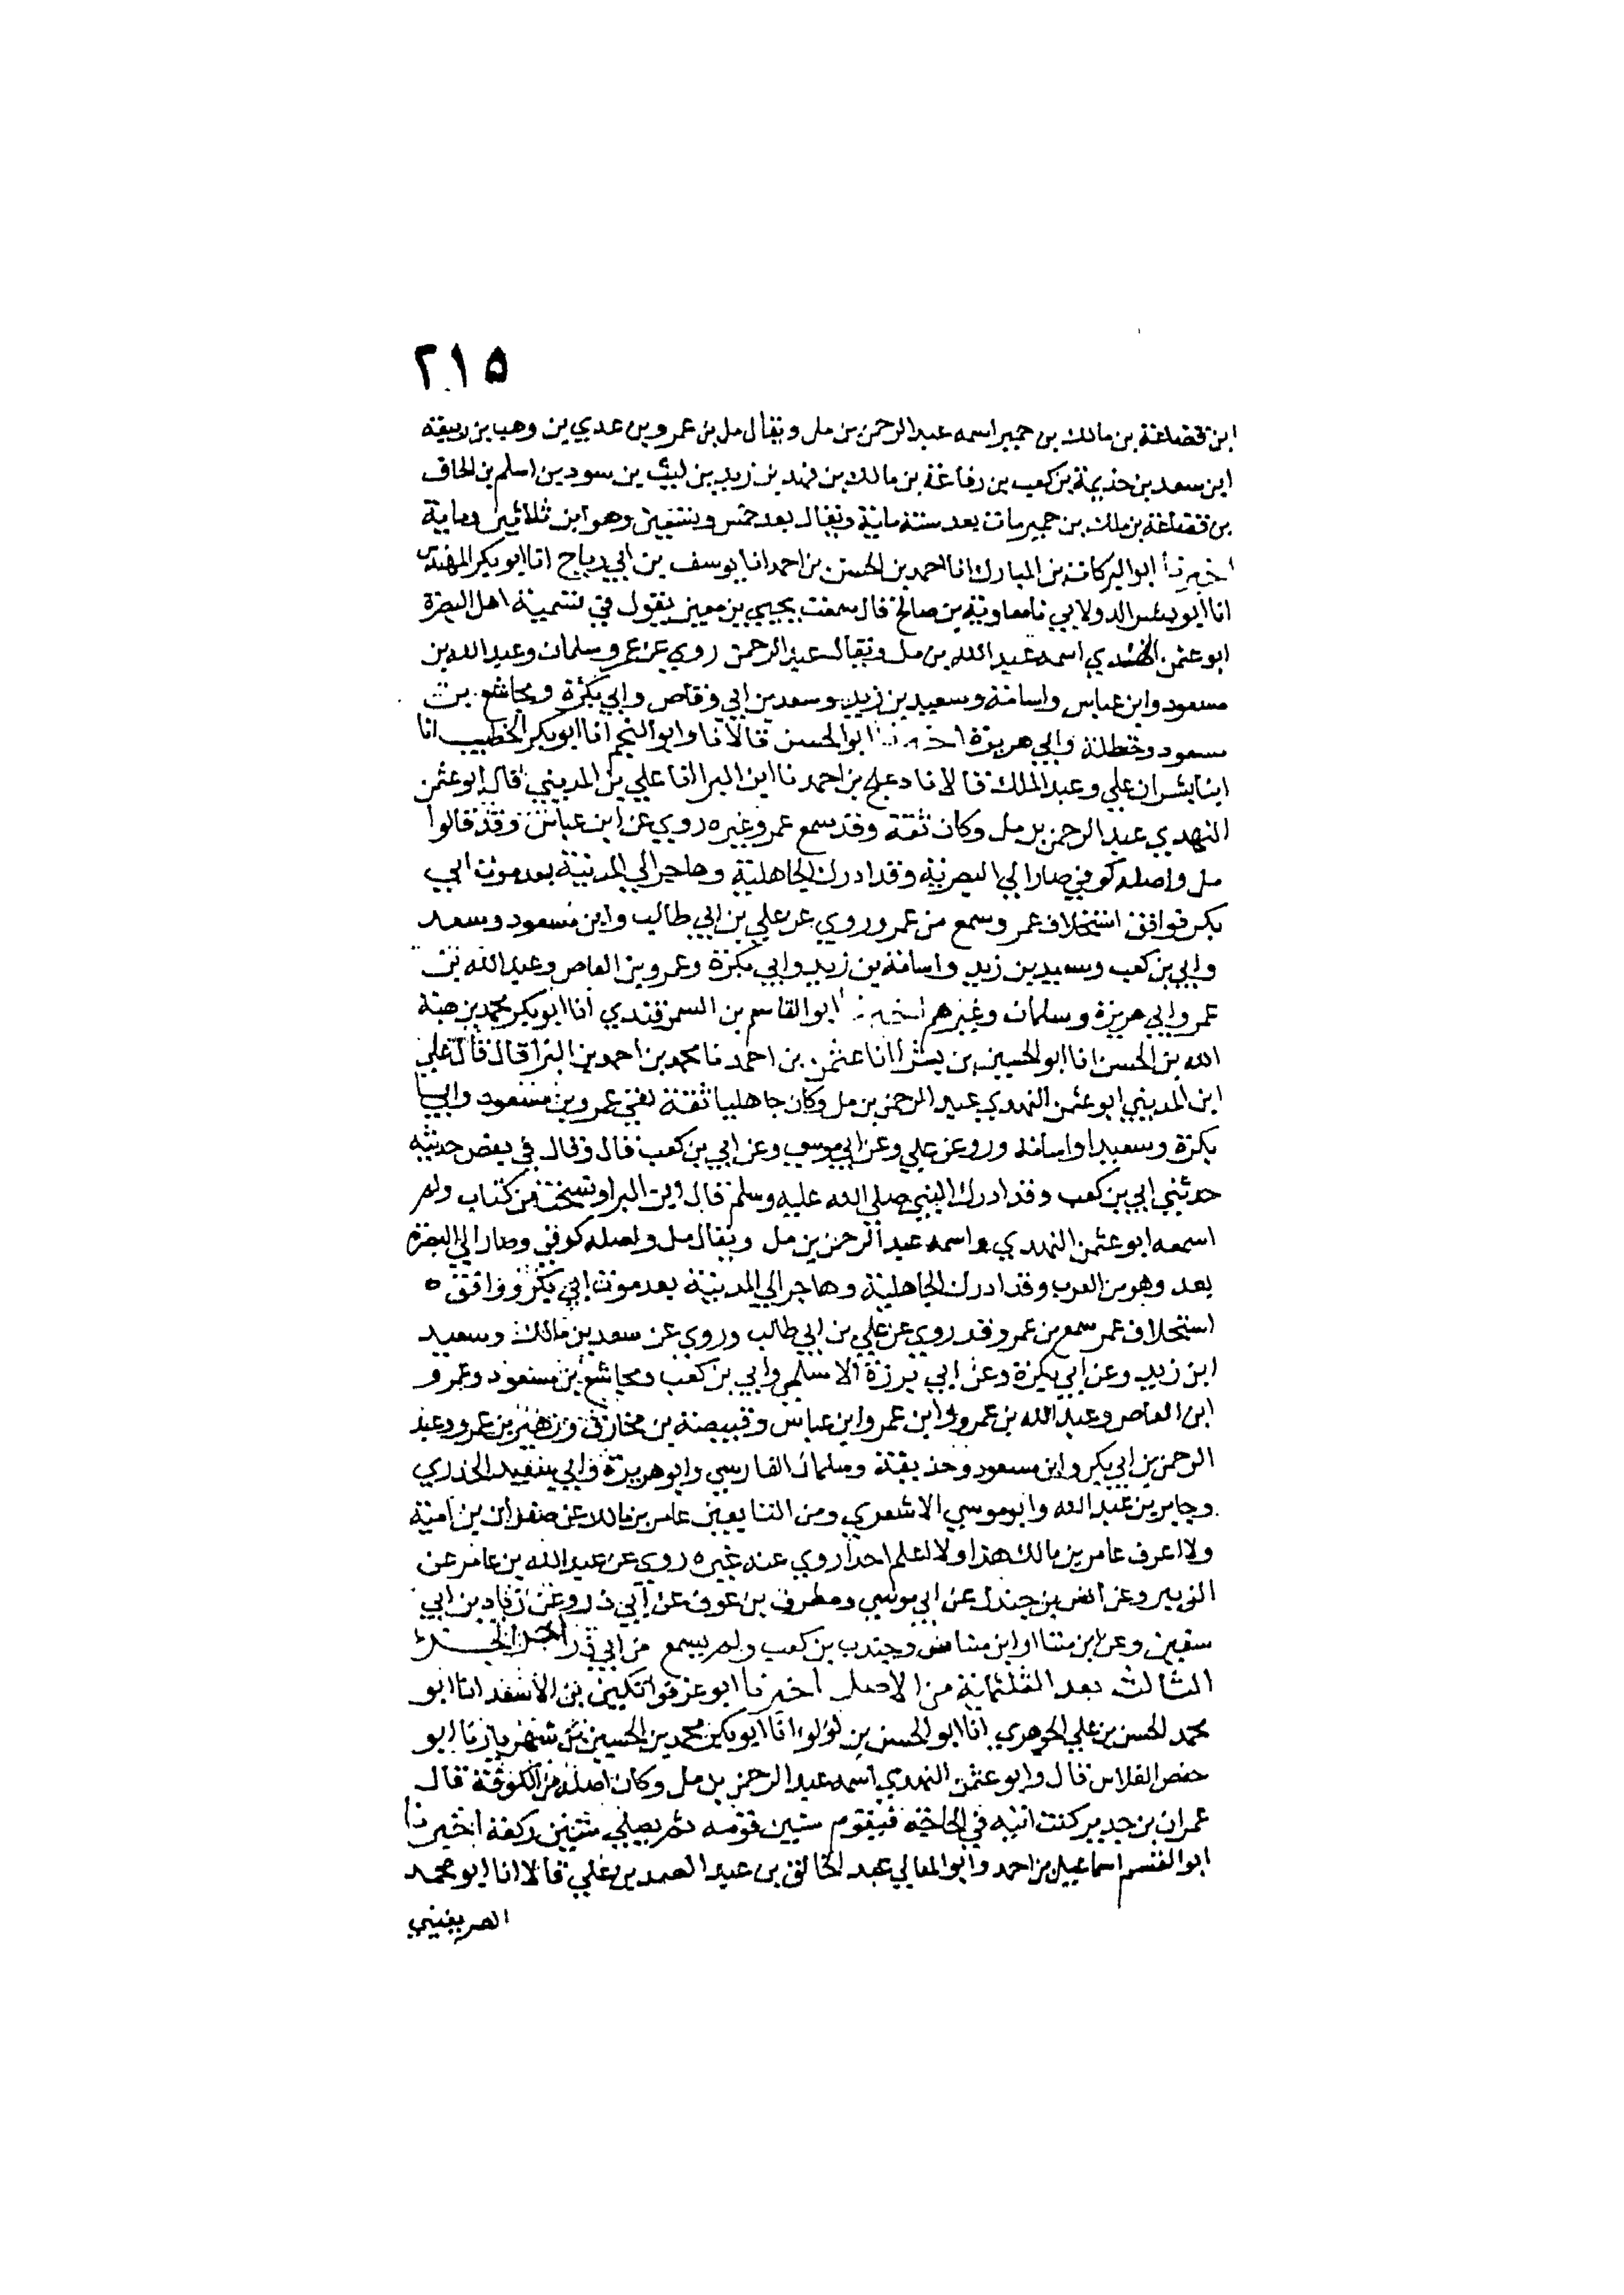 ٢١٥
ابن قضاعة بن مالك بن حمير اسمه عبد الرحمن بن مل ويقال مل بن عمرو بن عدي بن وهب بن ربيعة
ابن سعد بن خذيمة بن كعب بن رفاعة بن مالك بن نهد بن زيد بن ليث بن سود بن اسلم بن الحاف
بن قضاعة بن ملك بن حمير مات بعد سنة ماية ويقال بعد خمس وتسعين وهو ابن ثلاثين وماية
اخبرنا ابو البركات بن المبارك انا احمد بن الحسن بن احمد انا يوسف بن ابي رباح انا ابو بكر المهندس
انا ابو بشر الدولابي نا معاوية بن صالح قال سمعت يحيي بن معين يقول في تسمية اهل البصرة
ابو عثمن النهدي اسمه عبد الله بن مل ويقال عبد الرحمن روي عن عمر وسلمان وعبد الله بن
مسعود وابن عباس واسامة وسعيد بن زيد وسعد بن ابي وقاص وابي بكرة ومجاشع بن
مسعود وحنظلة وابي هريرة اخبرنا ابو الحسن قالا نا وابو النجم انا ابو بكر الخطيب انا
ابنا بشران علي وعبد الملك قالا نا دعلج بن احمد نا ابن البرا انا علي بن المديني قال ابو عثمن
النهدي عبد الرحمن بن مل وكان ثقة وقد سمع عمر وغيره روي عن ابن عباس وقد قالوا
مل واصله كوفي صار الي البصرية وقد ادرك الجاهلية وهاجر الي المدينة بعد موت ابي
بكر فوافق استخلاف عمر وسمع من عمر وروي عن علي بن ابي طالب وابن مسعود وسعد
وابي بن كعب وسعيد بن زيد واسامة بن زيد وابي بكرة وعمرو بن العاص وعبد الله بن
عمر وابي هريرة وسلمان وغيرهم اخبرنا ابو القاسم بن السمرقندي انا ابو بكر محمد بن هبة
الله بن الحسن انا ابو الحسين بن بشرا انا عثمن بن احمد نا محمد بن احمد بن البرا قال قال علي
ابن المديني ابو عثمن النهدي عبد الرحمن بن مل وكان جاهليا ثقة لقي عمر وبن مسعود وابا
بكرة وسعيدا واسامة وروي عن علي وعن ابي موسي وعن ابي بن كعب قال وقال في بعض حديثه
حدثني ابي بن كعب وقد ادرك النبي صلى الله عليه وسلم قال ابن البرا ونسخت من كتاب ولم
اسمعه ابو عثمن النهدي واسمه عبد الرحمن بن مل ويقال مل واصله كوفي وصار الي البصرة
بعد وهو من العرب وقد ادرك الجاهلية وهاجر الي المدينة بعد موت ابي بكر ووافق ه
استخلاف عمر سمع من عمر وقد روي عن علي بن ابي طالب وروي عن سعد بن مالك وسعيد
ابن زيد وعن ابي بكرة وعن ابي برزة الاسلمي وابي بن كعب ومجاشع بن مسعود وعمرو
ابن العاص وعبد الله بن عمرو وابن عمر وابن عباس وقبيصة بن مخارق وزهير بن عمرو وعبد
الرحمن بن ابي بكر وابن مسعود وحذيفة وسلمان الفارسي وابو هريرة وابي سعيد الخدري
وجابر بن عبد الله وابو موسي الاشعري ومن التابعين عامر بن مالك عن صفوان بن امية
ولا اعرف عامر بن مالك هذا ولا اعلم احدا روي عنه غيره روي عن عبد الله بن عامر عن
الزبير وعن انس بن جندل عن ابي موسي ومطرف بن عوف عن ابي ذر وعن زياد بن ابي
سفين وعن ابن وجندب بن كعب ولم يسمع من ابي ذر اخر الجزء
الثالث بعد الثلثماية من الاصل اخبرنا ابو عزفوا تكين بن الاسعد انا ابو
محمد الحسن بن علي الجوهري انا ابو الحسن بن لولوء انا ابو بكر محمد بن الحسين بن شهريار نا ابو
حفص الفلاس قال وابو عثمن النهدي اسمه عبد الرحمن بن مل وكان اصله من الكوفة قال
عمران بن حدير كنت اتيه في الحاجة فيقوم ستين قومه ثم يصلي مئتين ركعة اخبرنا
ابو القسم اسماعيل بن احمد وابو المعالي عبد الخالق بن عبد الصمد بن علي قالا انا ابو محمد
الصريفيني